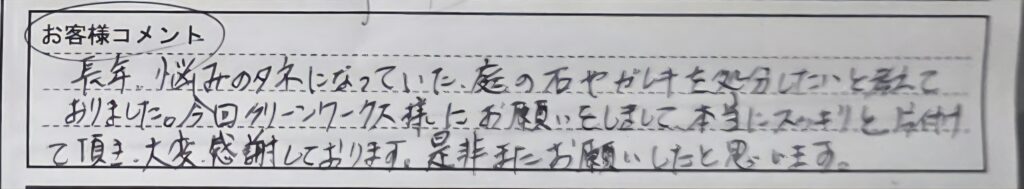 お客様コメント
長年、悩みのタネになっていた、庭の石やガレキを処分したいと考えて
おりました。今回グリーンワークス様にお願いをしまして、本当にスッキリと片付け
て頂き、大変感謝しております。是非またお願いしたと思います。